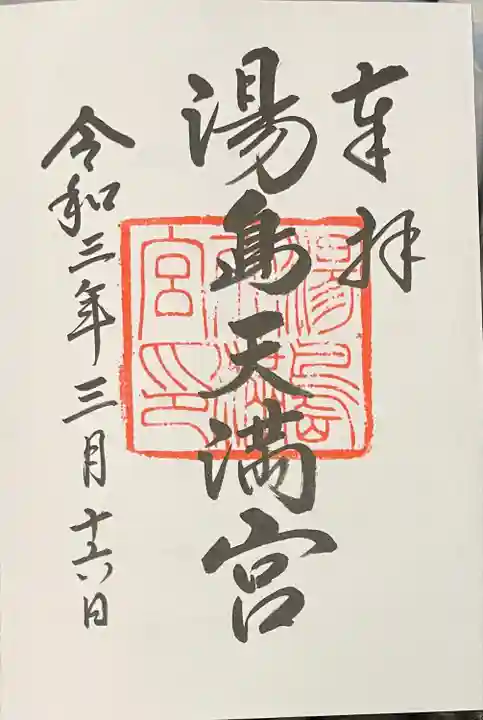 奉拝
湯島天満宮
湯島天満宮印
令和三年三月十六日